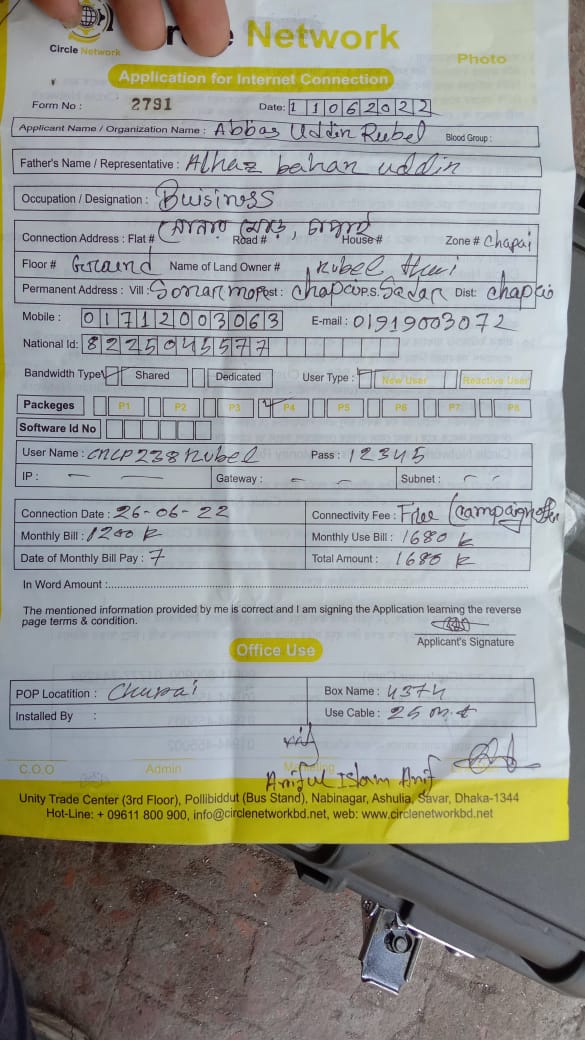 Circle Network
Network
Photo
Application for Internet Connection
Form No : 2791 Date: 11062022
Applicant Name / Organization Name : Abbas Uddin Rubel Blood Group :
Father's Name / Representative : Alhaz bahan uddin
Occupation / Designation : Buisiness
Connection Address : Flat # Road # House# Zone # Chapai
Floor # Graind Name of Land Owner # Rubel
Permanent Address : Vill : Post : Chapai P.S. Sadar Dist: Chapai
Mobile : 01712003063 E-mail : 01919003072
National Id: 8225045577
Bandwidth Type Shared Dedicated User Type : New User Reactive User
Packeges P1 P2 P3 P4 P5 P6 P7 P8
Software Id No
User Name : CNCP238Rubel Pass : 12345
IP : – – Gateway : – – Subnet : – –
Connection Date : 26-06-22 Connectivity Fee : Free (Campaign offer
Monthly Bill : 1200 k Monthly Use Bill : 1680 k
Date of Monthly Bill Pay : 7 Total Amount : 1680 k
In Word Amount :
The mentioned information provided by me is correct and I am signing the Application learning the reverse
page terms & condition.
Applicant's Signature
Office Use
POP Locatition : Chapai Box Name : 4374
Installed By : Use Cable : 25 m.t
Ariful Islam Arif
C.O.O Admin Marketing
Unity Trade Center (3rd Floor), Pollibiddut (Bus Stand), Nabinagar, Ashulia, Savar, Dhaka-1344
Hot-Line: + 09611 800 900, info@circlenetworkbd.net, web: www.circlenetworkbd.net